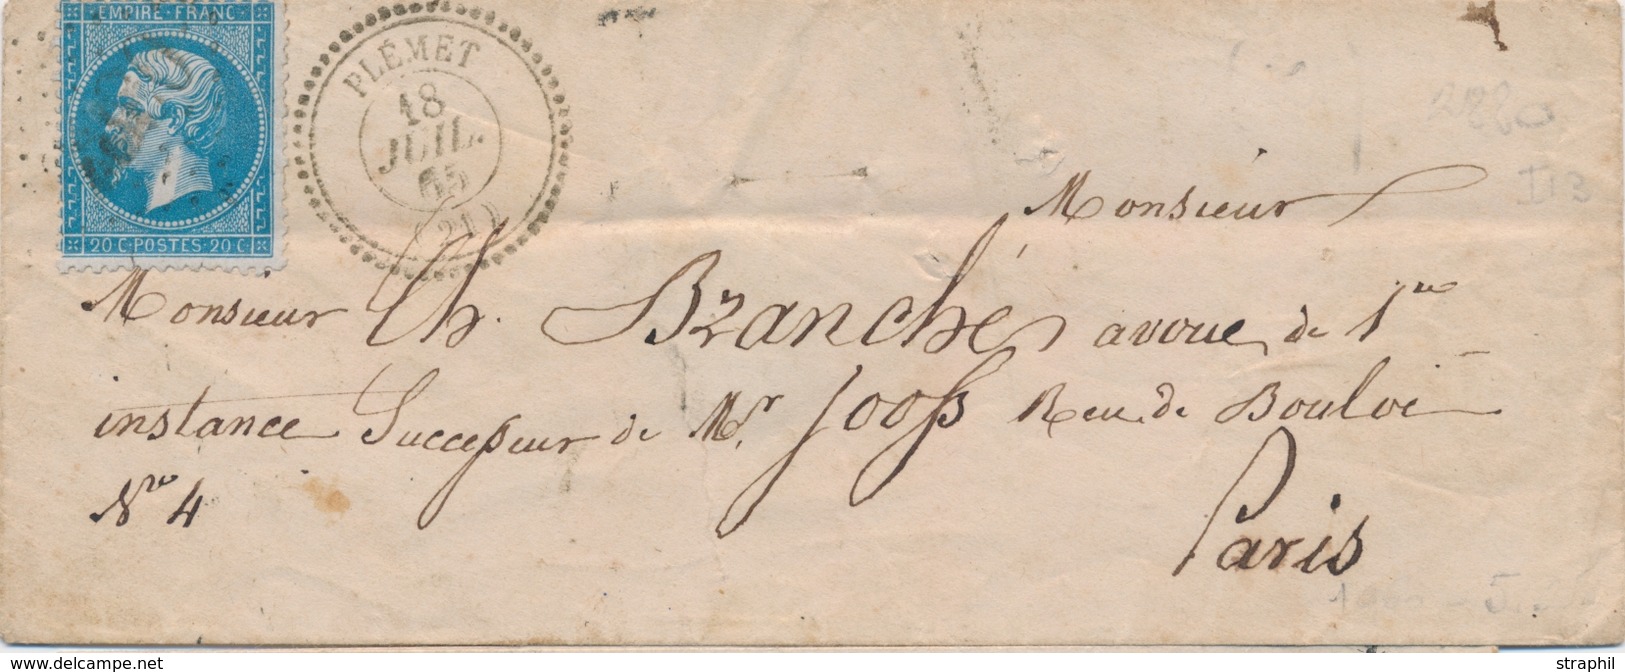 EMPIRE · FRANC
20 C · POSTES · 20 C
PLÉMET
18
JUIL.
65
(21)
Monsieur
Monsieur Ch. Branché avoué de 1re
instance Successeur de Mr. Jooss Rue de Bouloi
No 4
Paris
II 3
www.delcampe.net
straphil